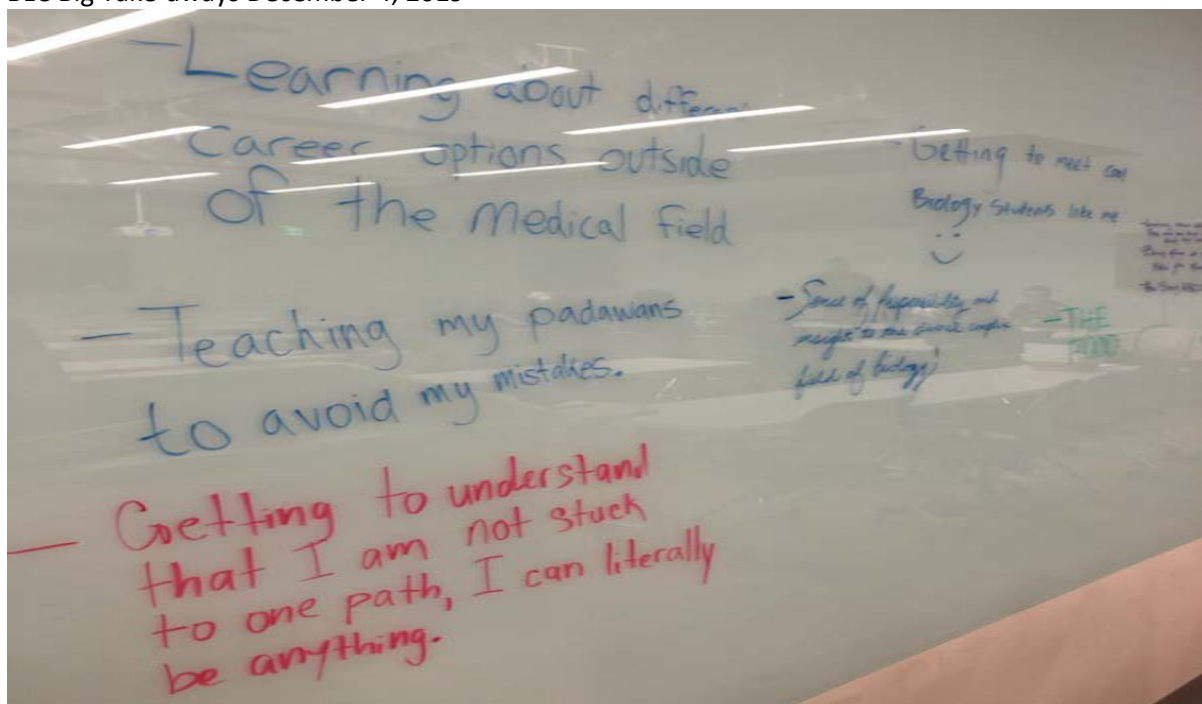 Big Take-aways December 4,
- Learning about different
Career options outside
of the Medical field
- Teaching my padawans
to avoid my mistakes.
- Getting to understand
that I am not stuck
to one path, I can literally
be anything.
- Getting to meet cool
Biology Students like me
- Sense of Responsibility and
insight to the
field of biology!
- THE
FOOD